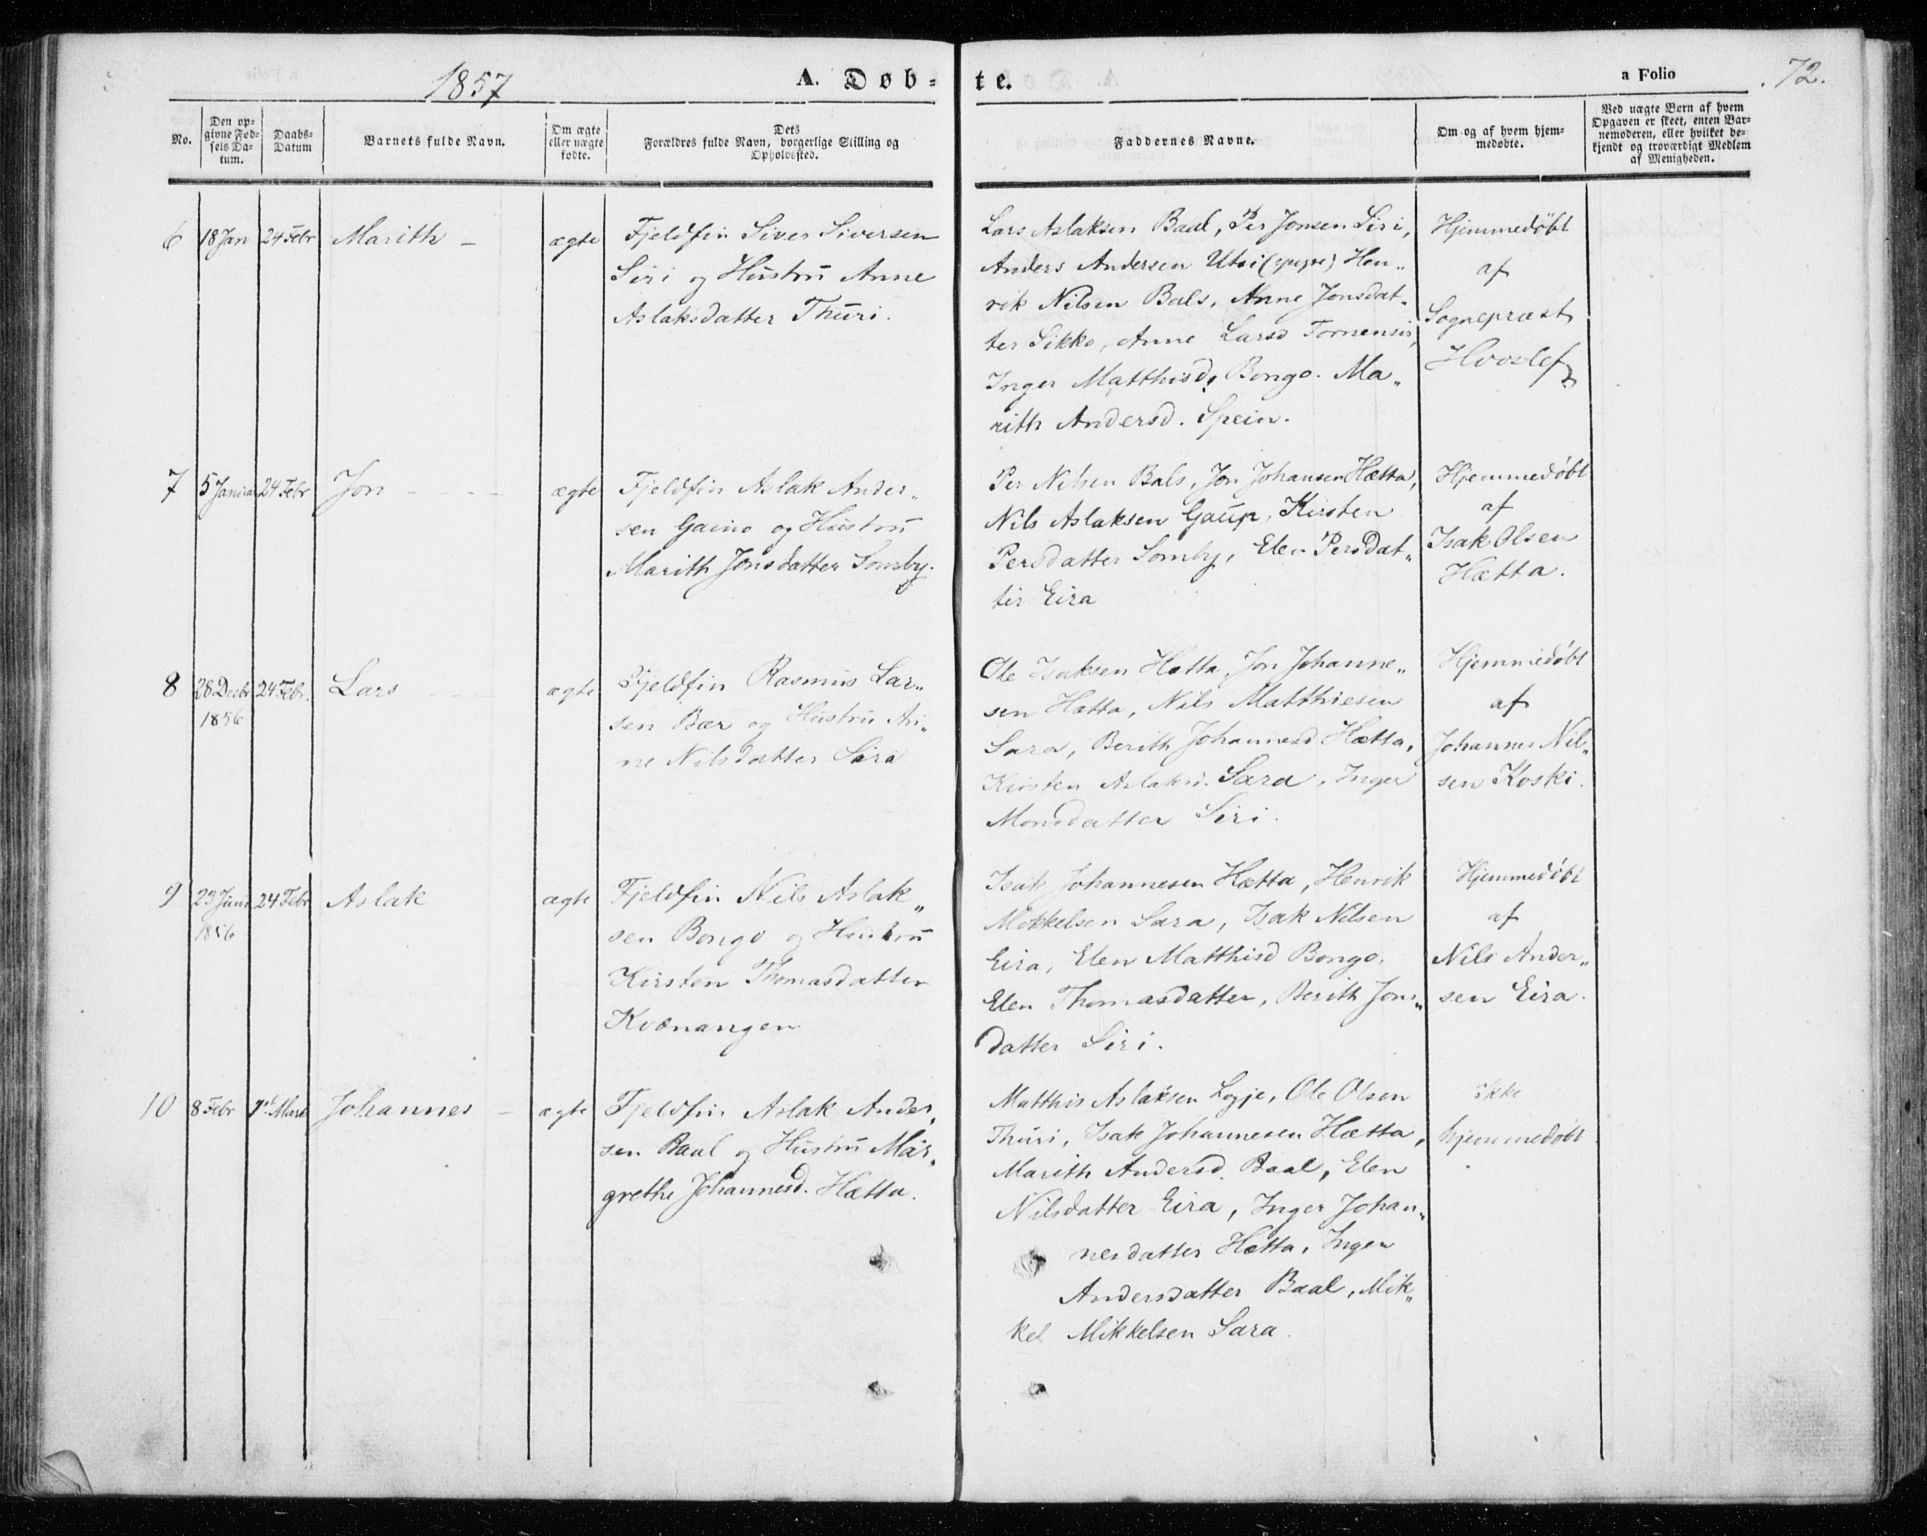 1857
A. Døb-
te.
a Folio
72.
No.
Den op-
givne Fød-
sels Da-
tum.
Daabs-
Datum
Barnets fulde Navn.
Om ægte
eller uægte
fødte.
Dets
Forældres fulde Navn, borgerlige Stilling og
Opholdssted.
Faddernes Navne.
Om og af hvem hjem-
medøbte.
Ved uægte Børn af hvem
Opgaven er skeet, enten Bar-
nemoderen, eller hvilket be-
kjendt og troværdigt Medlem
af Menigheden.
6
18 Jan
24 Febr
Marith
ægte
Fjeldfin Siver Siversen
Siri og Hustru Anne
Aslaksdatter Thuri.
Lars Aslaksen Baal, Per Jonsen Siri,
Anders Andersen Utsi (yngre) Hen„
rik Nilsen Bals, Anne Jonsdat„
ter Sikko, Anne Larsd Tornensis,
Inger Matthisd. Bongo. Ma„
rith Andersd. Spein.
Hjemmedøbt
af
Sognepræst
Hvoslef
7
5 Januar
24 Febr
Jon
ægte
Fjeldfin Aslak Ander„
sen Gaino og Hustru
Marith Jonsdatter Somby.
Per Nilsen Bals, Jon Johansen Hætta,
Nils Aslaksen Gaup, Kirsten
Persdatter Somby, Elen Persdat„
ter Eira
Hjemmedøbt
af
Isak Olsen
Hætta.
8
28 Decbr
1856
24 Febr.
Lars
ægte
Fjeldfin Rasmus Lar„
sen Bær og Hustru An„
ne Nilsdatter Sara
Ole Isaksen Hætta, Jon Johanne„
sen Hætta, Nils Matthiesen
Sara, Berith Johannesd Hætta,
Kirsten Aslaksd. Sara, Inger
Monsdatter Siri.
Hjemmedøbt
af
Johannes Nil„
sen Koski.
9
23 Juni
1856
24 Febr
Aslak
ægte
Fjeldfin Nils Aslak„
sen Bongo og Hustru
Kirsten Thomasdatter
Kvænangen
Isak Johannesen Hætta, Henrik
Mikkelsen Sara, Isak Nilsen
Eira, Elen Matthisd Bongo,
Elen Thomasdatter, Berith Jons„
datter Siri.
Hjemmedøbt
af
Nils Ander„
sen Eira.
10
8 Febr
1st Marts
Johannes
ægte
Fjeldfin Aslak Ander„
sen Baal og Hustru Mar„
grethe Johannesd. Hætta.
Matthis Aslaksen Logje, Ole Olsen
Thuri, Isak Johannesen Hætta,
Marith Andersd. Baal, Elen
Nilsdatter Eira, Inger Johan„
nesdatter Hætta, Inger
Andersdatter Baal, Mik„
kel Mikkelsen Sara.
ikke
hjemmedøbt